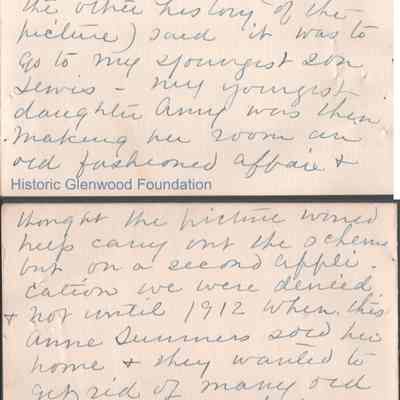 the other history of the
picture) said it was to
go to my youngist son
Lewis - My youngist
daughter Anny was then
making her room an
old fashioned affair &
Historic Glenwood Foundation
thought the picture would
help carry out the scheme
but on a second appli-
cation we were denied
& not until 1912 when this
Anne Summers sold her
home & they wanted to
get rid of many old